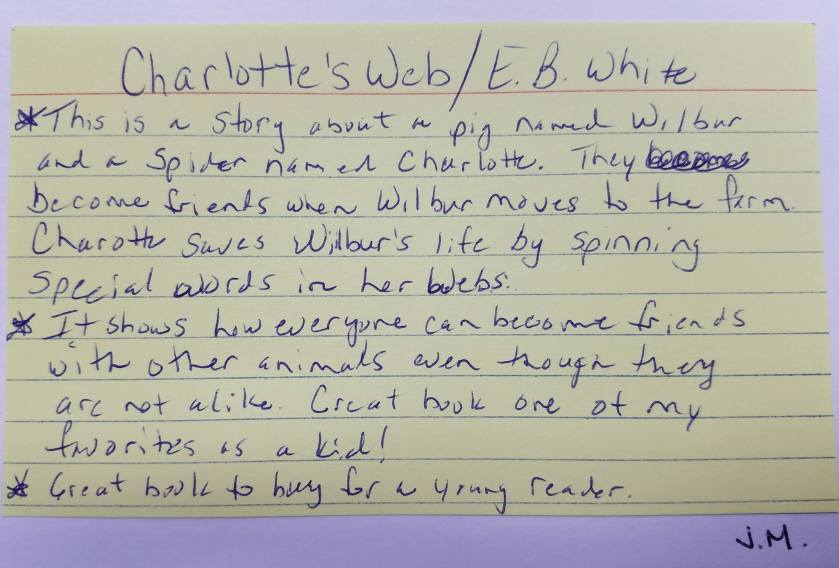 Charlotte's Web/E.B. White
*This is a story about a pig named Wilbur
and a Spider named Charlotte. They
become friends when Wilbur moves to the farm.
Charotte saves Wilbur's life by spinning
special words in her webs.
* It shows how everyone can become friends
with other animals even though they
are not alike. Great book one of my
favorites as a kid!
* Great book to buy for a young reader.
J.M.